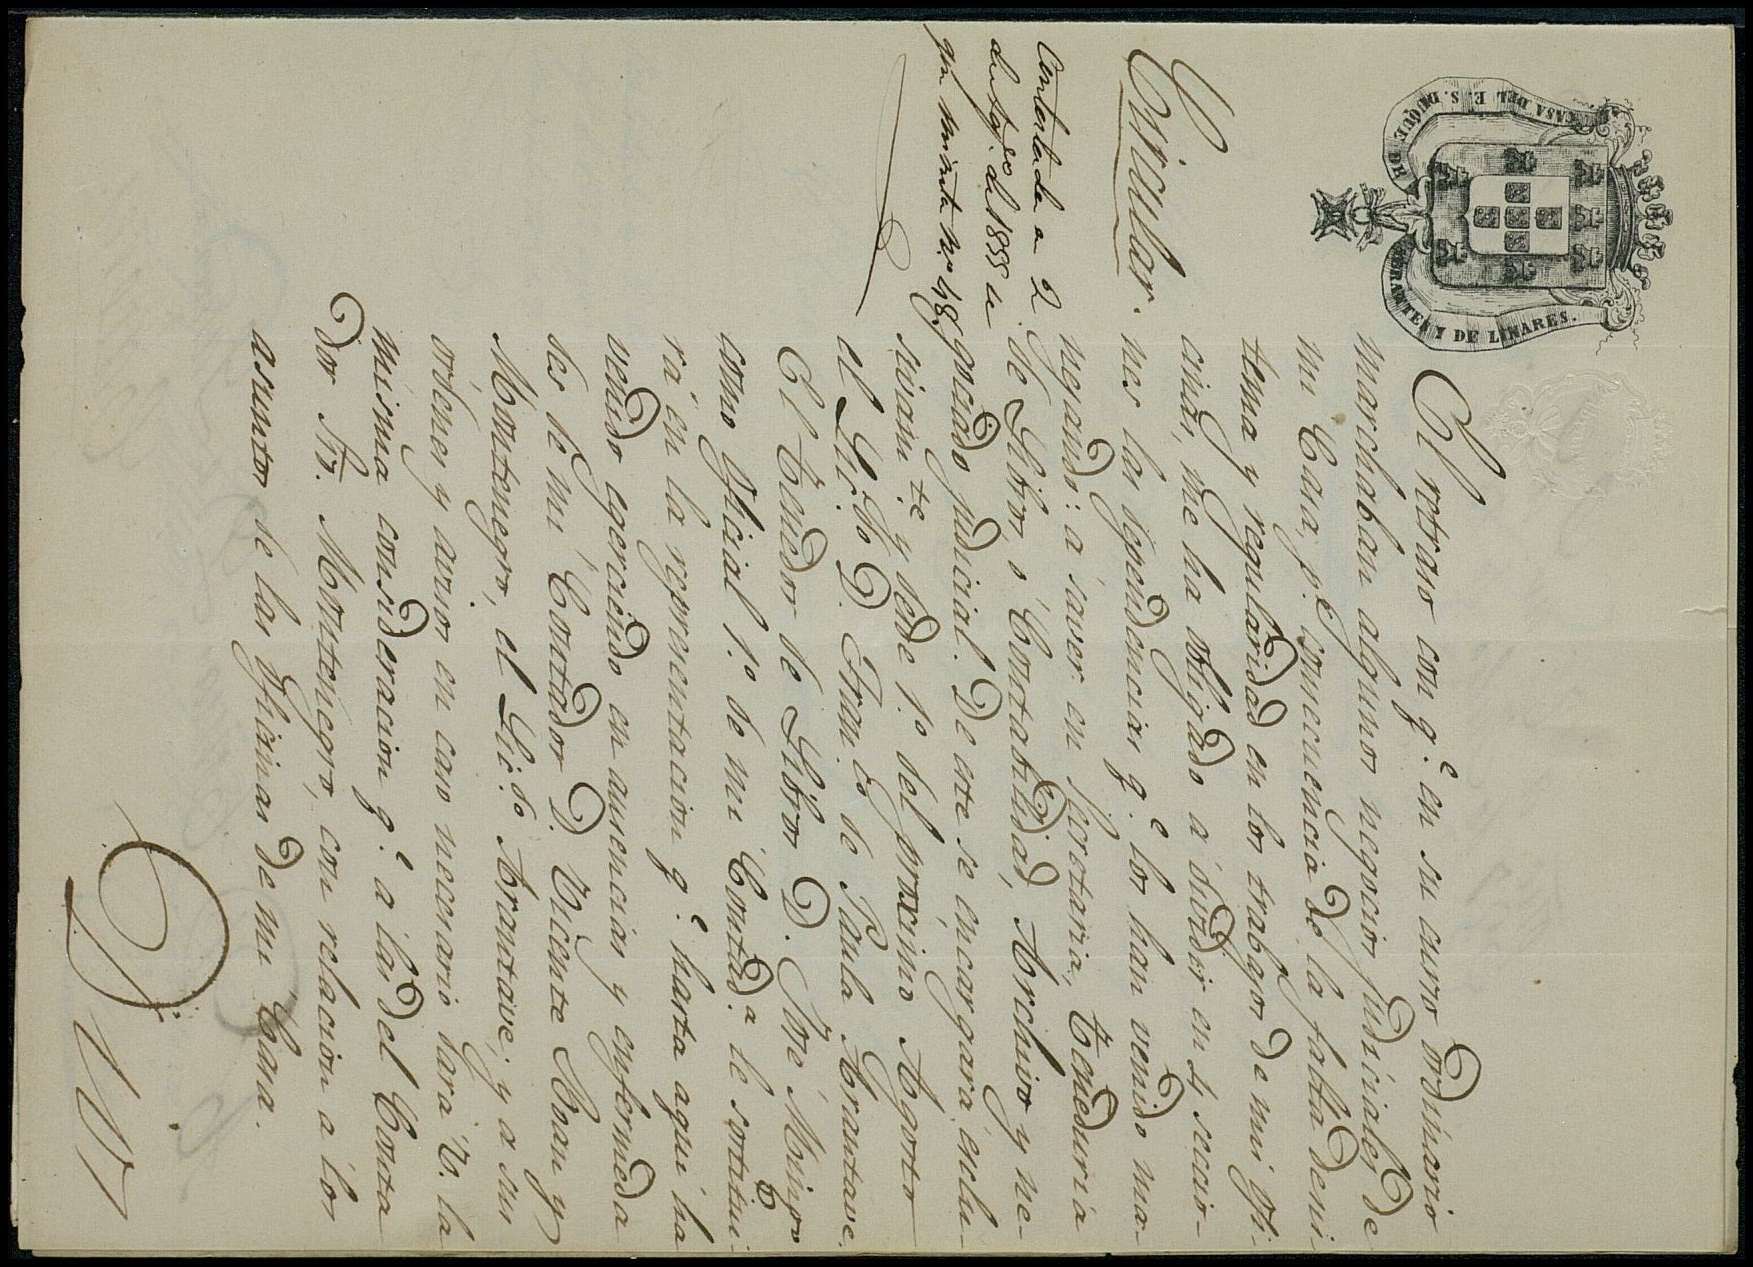 CASA DEL E. S. DUQUE DE ABRANTES Y DE LINARES.
Circular.
Contestada a 2
de Ag.to de 1855 u
gún minuta N.o 48.
El retraso con q.e en su curso ordinario
marchaban algunos negocios judiciales de
mi Casa, p.r consecuencia de la falta de sis-
tema y regularidad en los trabajos de mis ofi-
cinas, me ha obligado a dividir en 4 seccio-
nes las dependencias q.e los han venido ma-
nejando: a saver: en Secretaria, Teneduria
de Libros o Contabilidad, Archivo y ne-
gociado judicial. De este se encargará esclu-
sivam.te y desde 1.o del proximo Agosto
el Li.do D. Fran.co de Paula Arrantave.
El Tenedor de Libros D. Jose
como Oficial 1.o de mi Contad.a le sostitui-
rá en la representacion q.e hasta aqui ha
venido egerciendo en ausencias y enfermeda
des de mi Contador D. Vicente Sran y
Montenegro, el Li.do Arrantave; y a sus
ordenes y avisos en caso necesario hará V. la
misma consideracion q.e a las del Conta
dor Sr. Montenegro, con relacion a los
asuntos de las Oficinas de mi Casa.